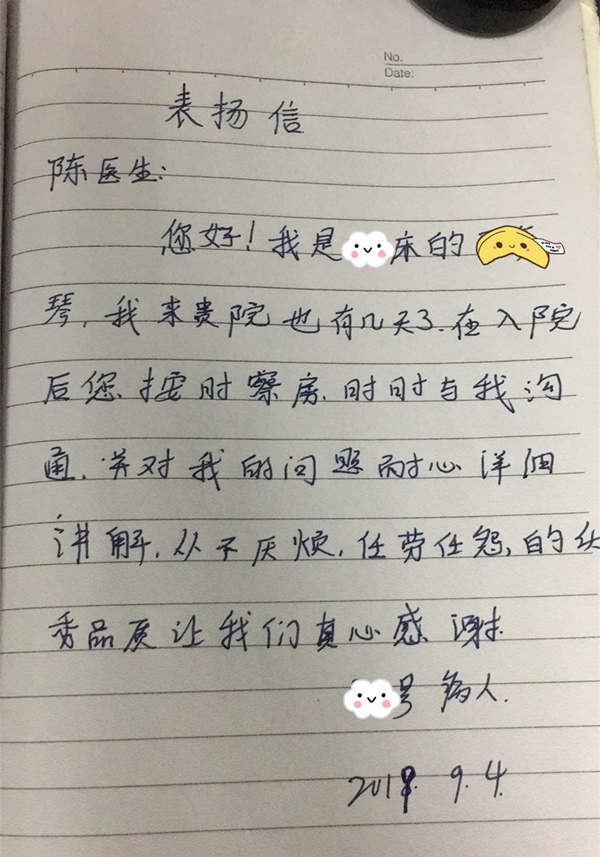 No.
Date:
表扬信
陈医生:
您好!我是床的
琴,我来贵院也有几天了.在入院
后您.按时察房.时时与我沟
通.并对我的问题耐心详细
讲解.从不厌烦.任劳任怨,的优
秀品质让我们真心感谢.
号病人.
2019.9.4.